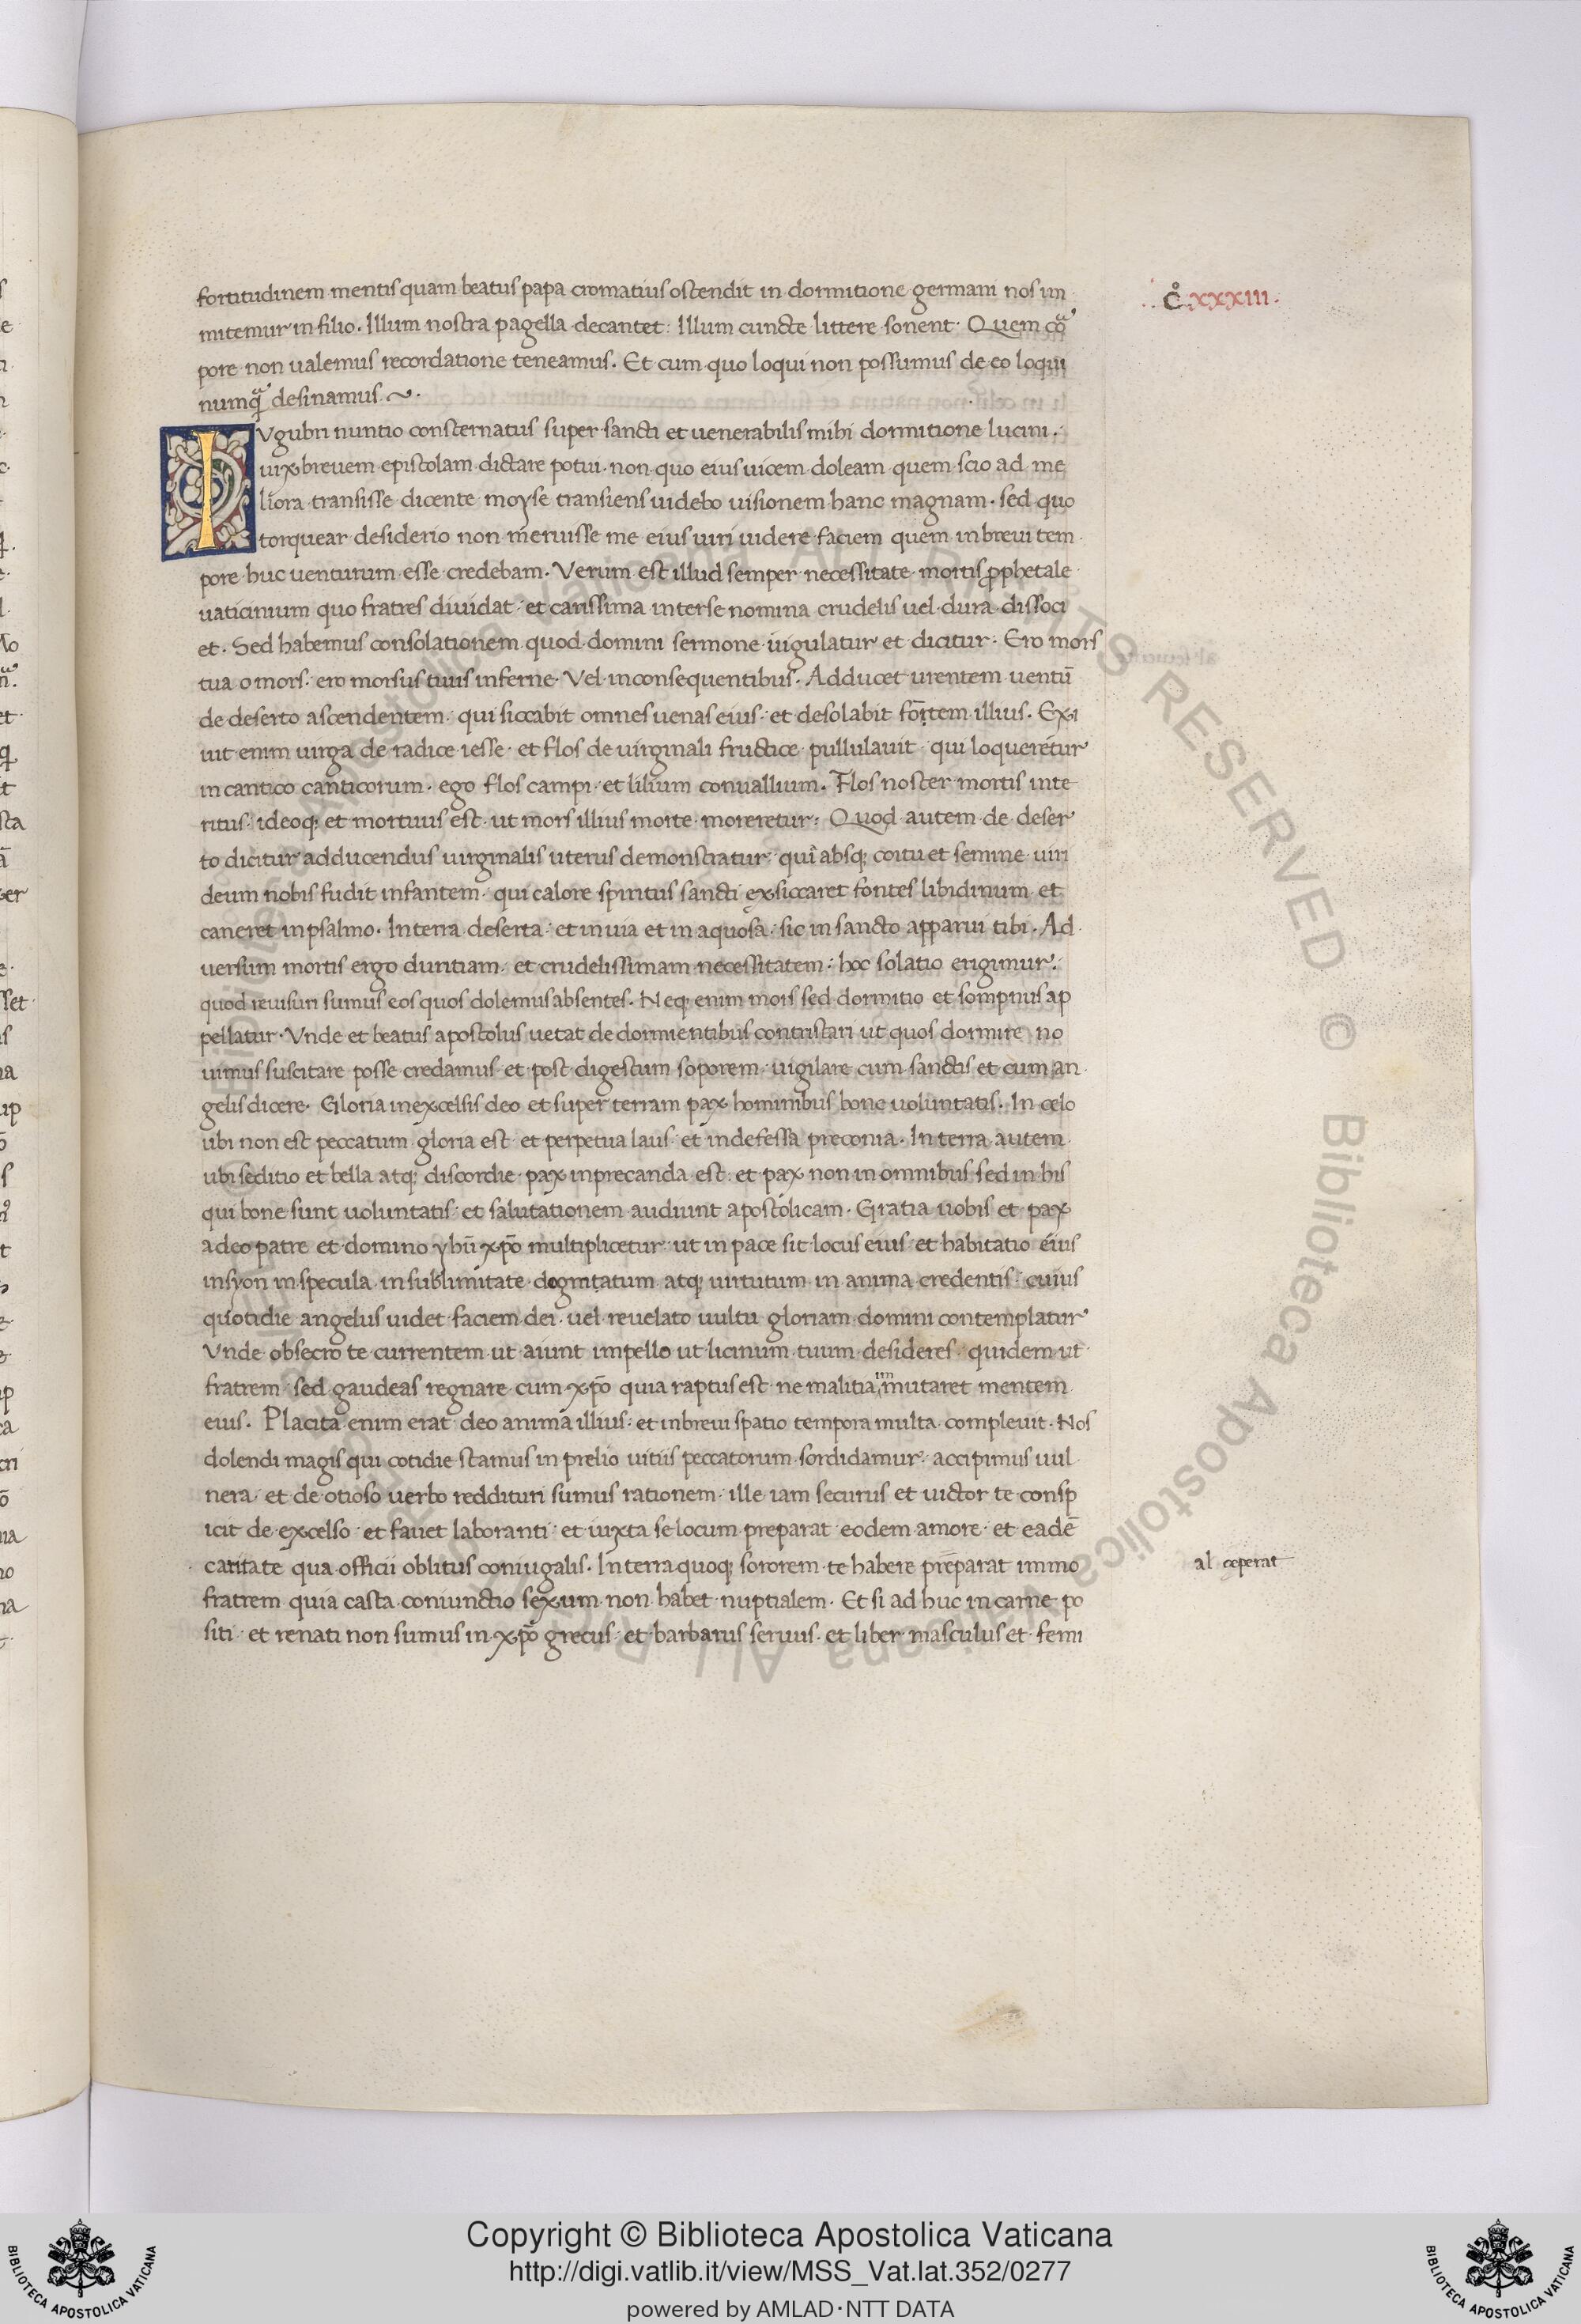 fortitudinem mentis quam beatus papa cromatius ostendit in dormitione germani nos im
mitemur in filio. Illum nostra pagella decantet: Illum cuncte littere sonent. Quem
pore non ualemus recordatione teneamus. Et cum quo loqui non possumus de eo loqui
desinamus.
C. XXXIII.
I Vgubri nuntio consternatus super sancti et uenerabilis mihi dormitione lucini.
uix breuem epistolam dictare potui. non quo eius uicem doleam quem scio ad me
liora transisse dicente moyse transiens uidebo uisionem hanc magnam. sed quo
torquear desiderio non meruisse me eius uiri uidere faciem quem in breui tem
pore huc uenturum esse credebam. Verum est illud semper necessitate mortis ꝓphetale
uaticinium quo fratres diuidat: et carissima inter se nomina crudelis uel dura dissoci
et. Sed habemus consolationem quod domini sermone iugulatur et dicitur. Ero mors
tua o mors: ero morsus tuus inferne. Vel in consequentibus. Adducet urentem uentū
de deserto ascendentem. qui siccabit omnes uenas eius: et desolabit illius. Exi
uit enim uirga de radice iesse. et flos de uirginali fructice pullulauit. qui loqueretur
in cantico canticorum. ego flos campi. et lilium conuallium. Flos noster mortis inte
ritus. ideoq; et mortuus est. ut mors illius morte moreretur: Quod autem de deser
to dicitur adducendus uirginalis uterus demonstratur. qui absq; coitu et semine uiri
deum nobis fudit infantem. qui calore spiritus sancti exsiccaret fontes libidinum et
caneret in psalmo. In terra deserta: et inuia et in aquosa: sic in sancto apparui tibi. Ad
uersum mortis ergo duritiam. et crudelissimam necessitatem: hoc solatio erigimur:
quod reuisuri sumus eos quos dolemus absentes. Neq; enim mors sed dormitio et sompnus ap
pellatur. Vnde et beatus apostolus uetat de dormientibus contristari ut quos dormire no
uimus suscitare posse credamus. et post digestum soporem. uigilare cum sanctis et cum an
gelis dicere. Gloria in excelsis deo et super terram pax hominibus bone uoluntatis. In celo
ubi non est peccatum gloria est. et perpetua laus. et indefessa preconia. In terra autem
ubi seditio et bella atq; discordie. pax inprecanda est. et pax non in omnibus sed in his
qui bone sunt uoluntatis: et salutationem audiunt apostolicam. Gratia uobis et pax
a deo patre et domino yhū xp̄o multiplicetur. ut in pace sit locus eius. et habitatio eius
in syon in specula. in sublimitate dogmatum atq; uirtutum in anima credentis: cuius
quotidie angelus uidet faciem dei. uel reuelato uultu gloriam domini contemplatur
Vnde obsecro te currentem ut aiunt impello ut licinum tuum desideres. quidem ut
fratrem. sed gaudeas regnare cum xp̄o quia raptus est. ne malitia immutaret mentem
eius. Placita enim erat deo anima illius: et in breui spatio tempora multa compleuit. Nos
dolendi magis qui cotidie stamus in prelio uitiis peccatorum sordidamur. accipimus uul
nera. et de otioso uerbo reddituri sumus rationem. ille iam securus et uictor te consp
icit de excelso. et fauet laboranti. et iuxta se locum preparat eodem amore. et eadē
caritate qua officii oblitus coniugalis. In terra quoq; sororem te habere preparat immo
al ceperat
fratrem quia casta coniunctio sexum non habet nuptialem. Et si ad huc in carne po
siti. et renati non sumus in xp̄o grecus. et barbarus seruus. et liber masculus et femi
Copyright © Biblioteca Apostolica Vaticana
http://digi.vatlib.it/view/MSS_Vat.lat.352/0277
powered by AMLAD·NTT DATA
BIBLIOTECA APOSTOLICA VATICANA
BIBLIOTECA APOSTOLICA VATICANA